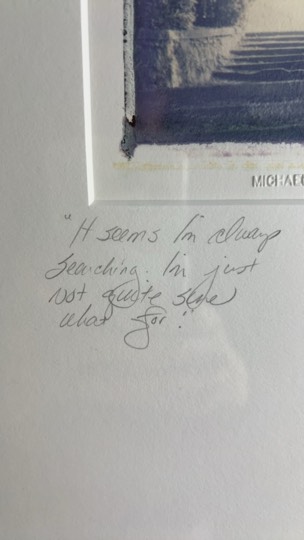 MICHAEL
"It seems I'm always
searching. I'm just
not quite sure
what for."